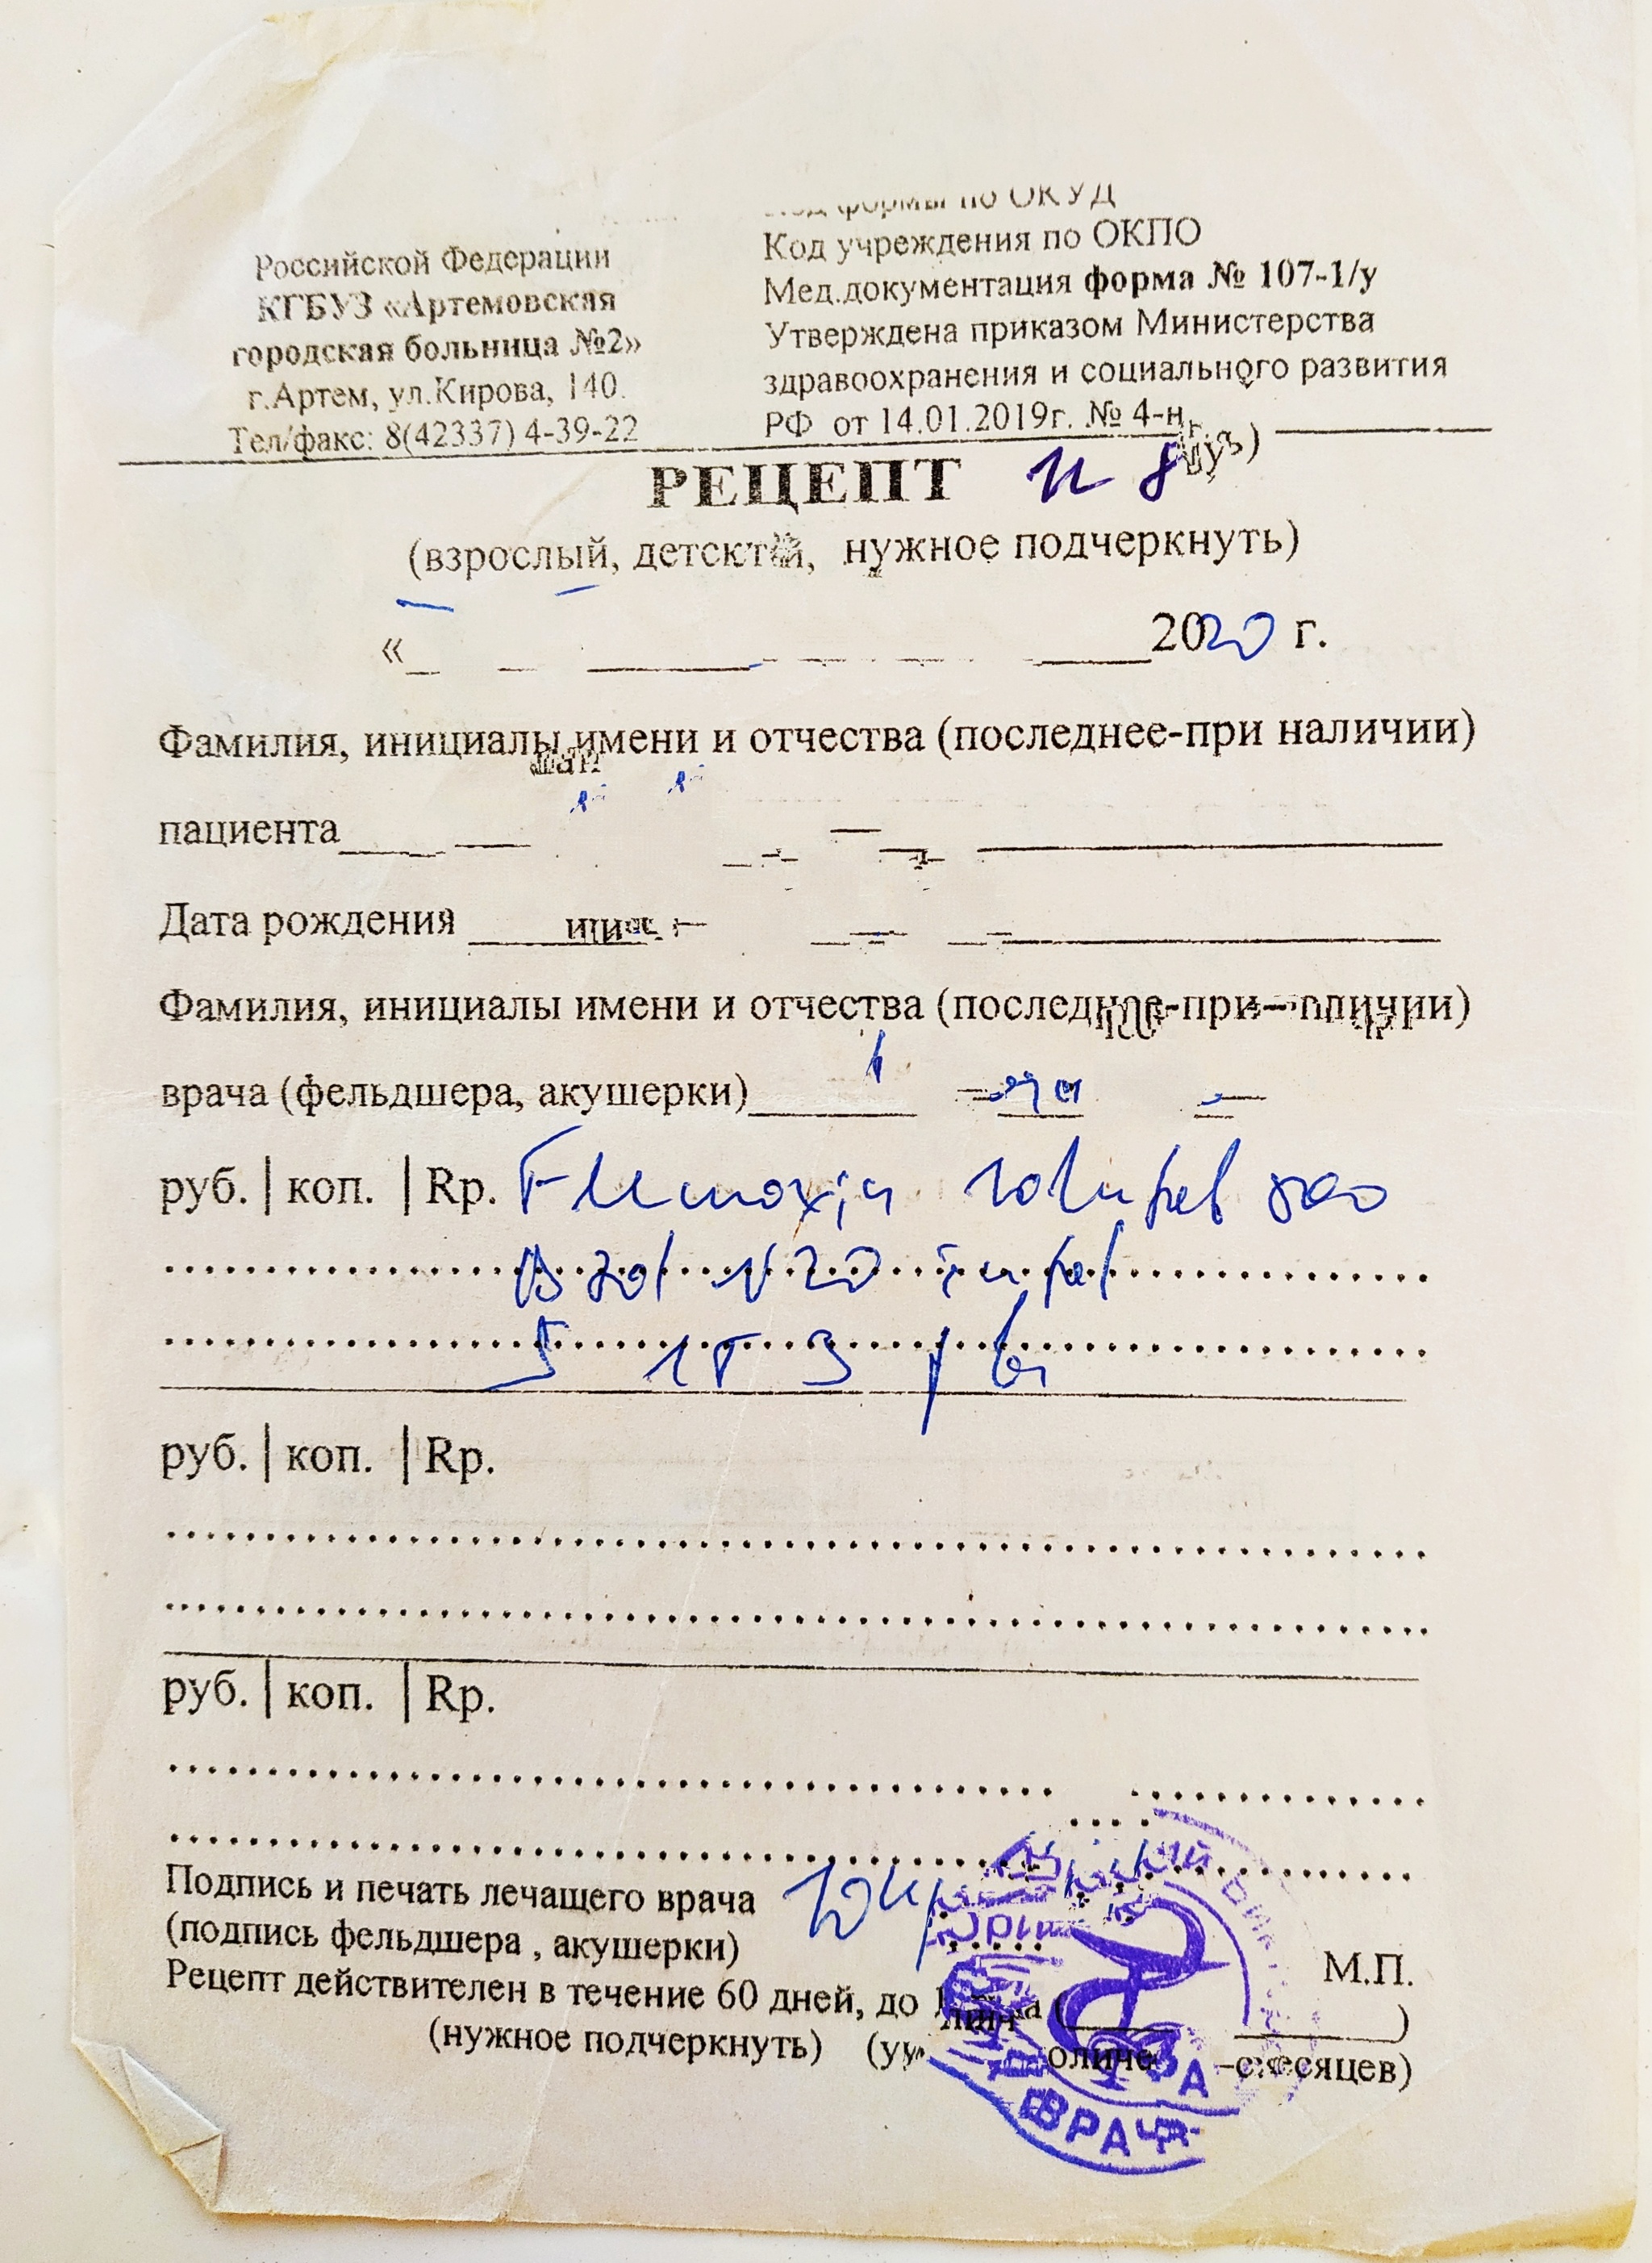 формы по ОКУД
Российской Федерации
КГБУЗ «Артемовская
городская больница №2»
г.Артем, ул.Кирова, 140.
Тел/факс: 8(42337) 4-39-22
Код учреждения по ОКПО
Мед.документация форма № 107-1/у
Утверждена приказом Министерства
здравоохранения и социального развития
РФ от 14.01.2019г. № 4-н
РЕЦЕПТ
(взрослый, нужное подчеркнуть)
« 2020 г.
Фамилия, инициалы имени и отчества (последнее-при наличии)
пациента
Дата рождения
Фамилия, инициалы имени и отчества
врача (фельдшера, акушерки)
руб. | коп. | Rp. Flemoxin solutab 500
D td N 20 in tab
S 1т 3 р/
руб. | коп. | Rp.
руб. | коп. | Rp.
Подпись и печать лечащего врача
(подпись фельдшера , акушерки)
М.П.
Рецепт действителен в течение 60 дней, до
(нужное подчеркнуть)
ВРАЧ